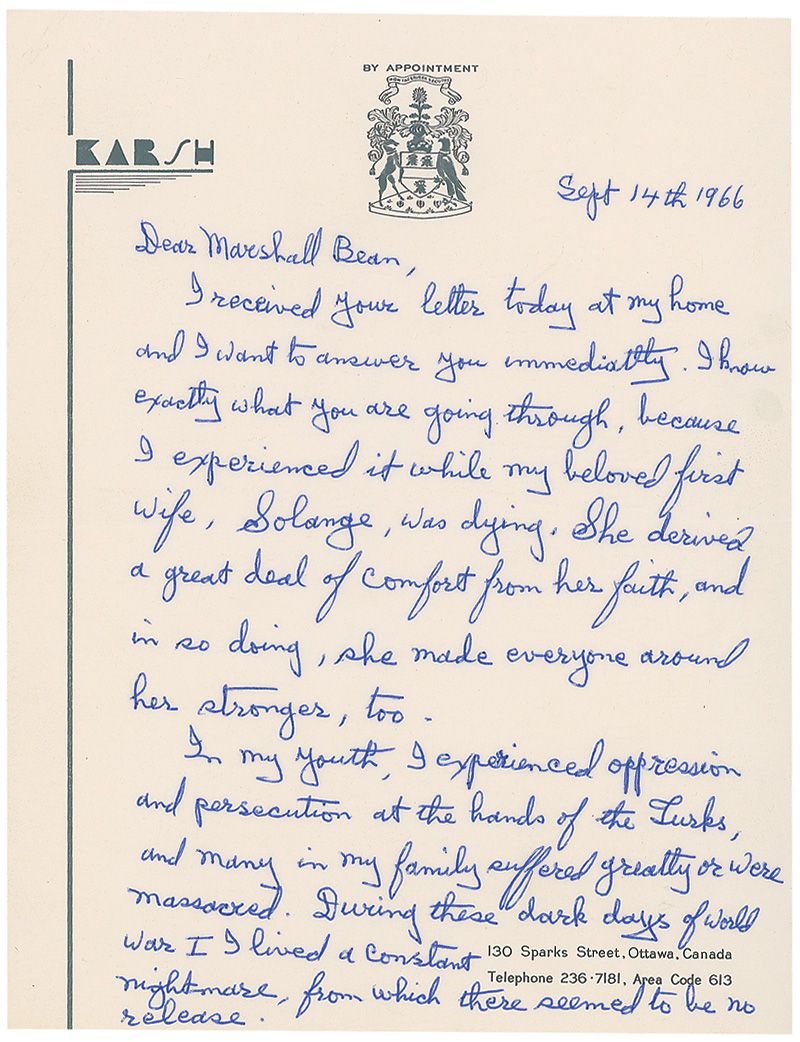 BY APPOINTMENT
KARSH
Sept 14th 1966
Dear Marshall Bean,
I received your letter today at my home
and I want to answer you immediatly. I know
exactly what you are going through, because
I experienced it while my beloved first
wife, Solange, was dying. She derived
a great deal of comfort from her faith, and
in so doing, she made everyone around
her stronger, too.
In my youth, I experienced oppression
and persecution at the hands of the Turks,
and many in my family suffered greatly or were
massacred. During these dark days of world
war I I lived a constant
130 Sparks Street, Ottawa, Canada
Telephone 236·7181, Area Code 613
nightmare, from which there seemed to be no
release.